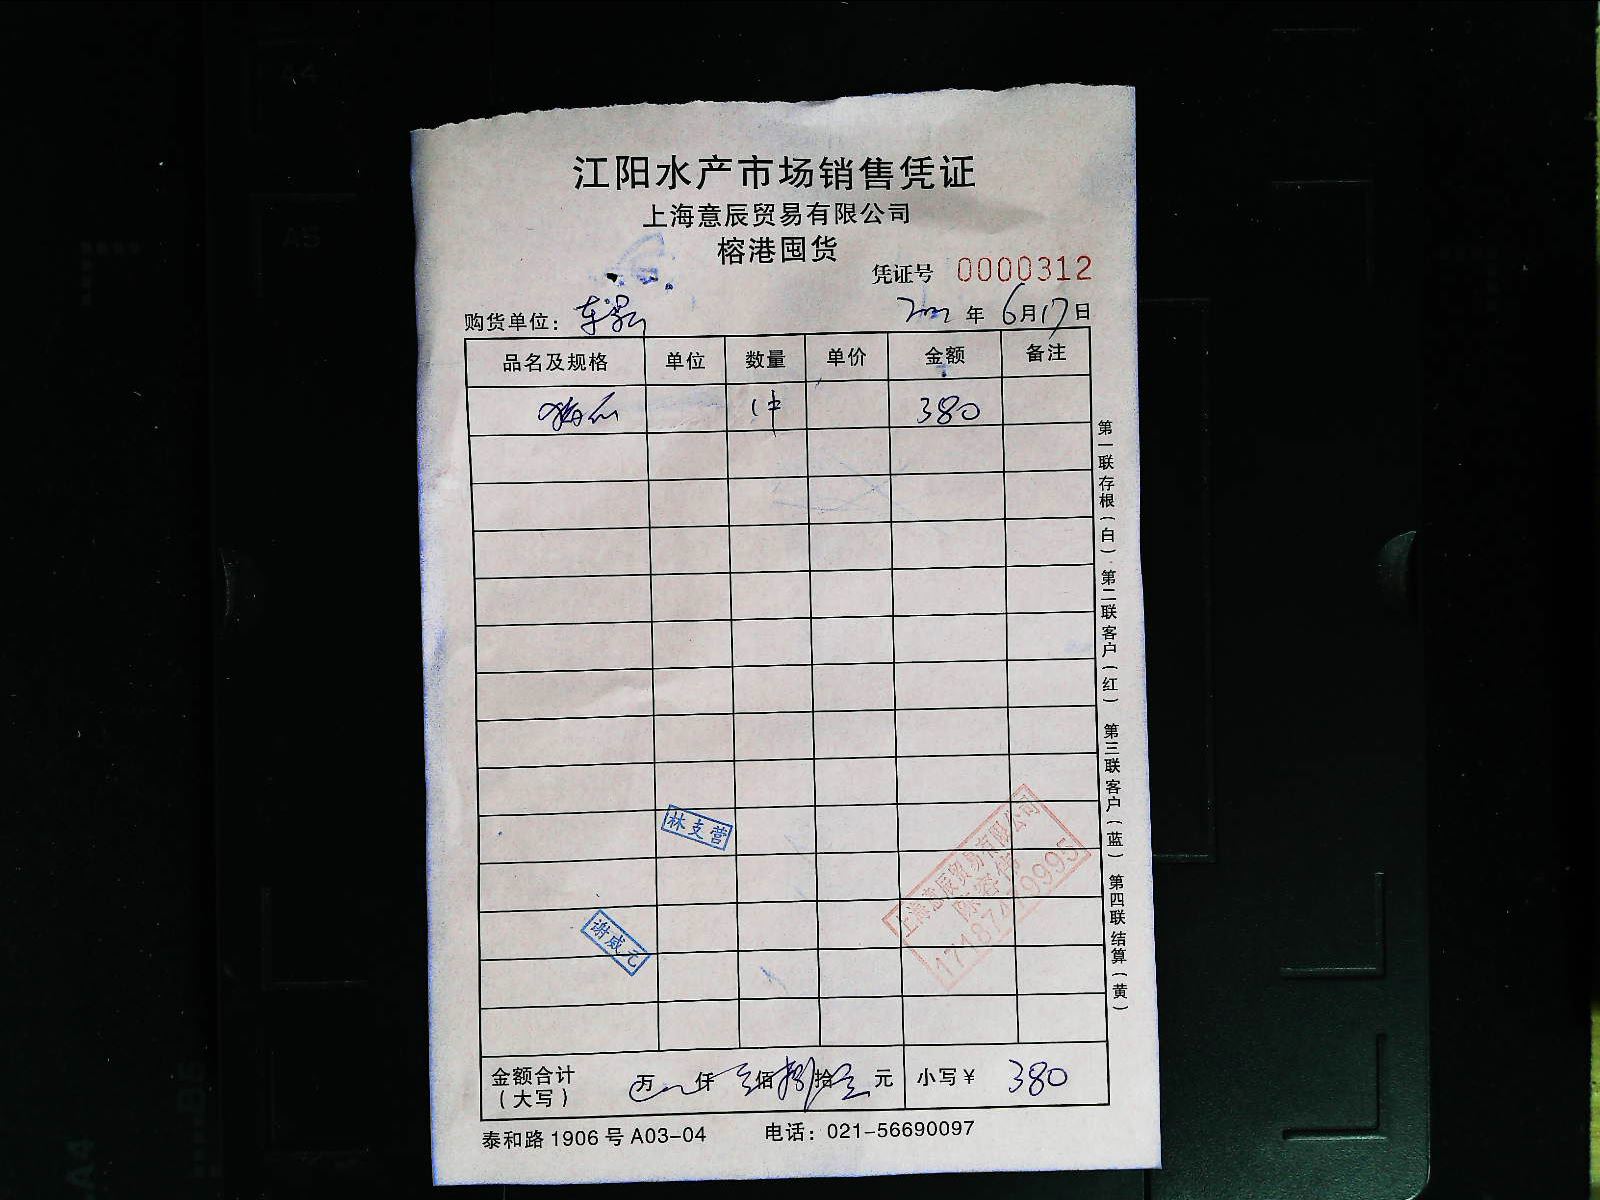 江阳水产市场销售凭证
上海意辰贸易有限公司
榕港囤货
凭证号 0000312
购货单位：
年 6月17日
品名及规格 单位 数量 单价 金额 备注
1件 380
第一联存根（白） 第二联客户（红） 第三联客户（蓝） 第四联结算（黄）
林支营
谢咸元
上海意辰贸易有限公司
金额合计（大写） 万 仟 叁佰捌拾 元 小写¥ 380
泰和路1906号A03-04 电话：021-56690097